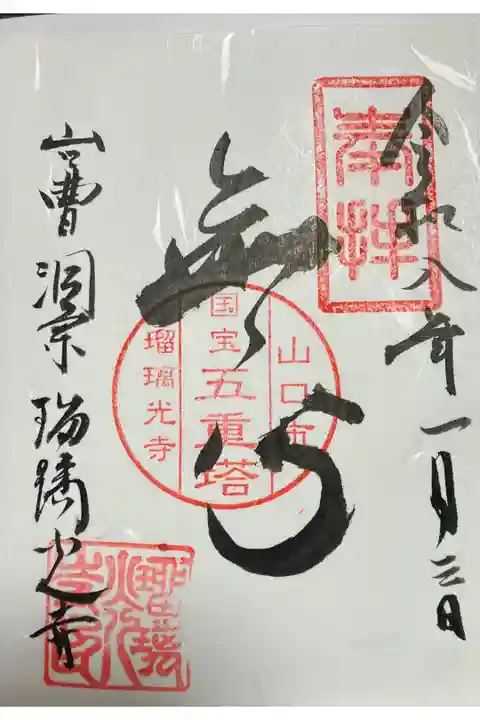 奉拝
令和八年一月三日
無
山口市
国宝
五重塔
瑠璃光寺
曹洞宗瑠璃光寺